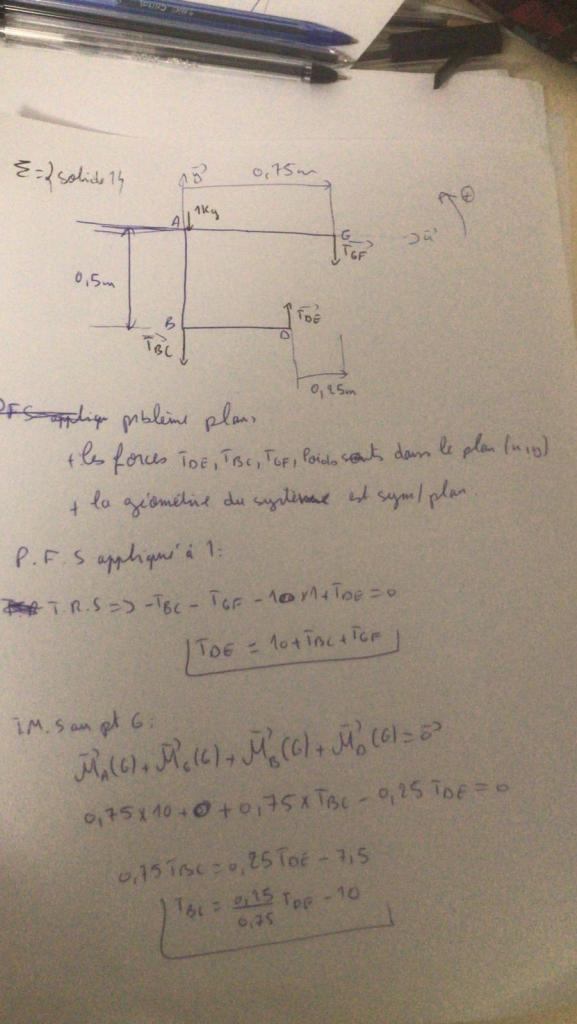 Σ = {solide 1}
v⃗
0,75m
A
1Kg
G
T⃗GF
u⃗
⊕
0,5m
B
T⃗BC
D
T⃗DE
0,25m
P.F.S applique problème plan,
+ les forces TDE, TBC, TGF, Poids sont dans le plan (u,v)
+ la géométrie du système est sym/plan.
P.F.S appliqué à 1:
T.R.S => -TBC - TGF - 10×1 + TDE = 0
TDE = 10 + TBC + TGF
T.M.S au pt G:
M⃗A(G) + M⃗G(G) + M⃗B(G) + M⃗D(G) = 0⃗
0,75×10 + 0 + 0,75×TBC - 0,25 TDE = 0
0,75 TBC = 0,25 TDE - 7,5
TBC = 0,25/0,75 TDE - 10